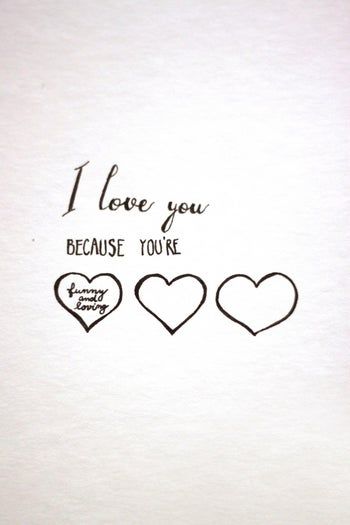 I love you
BECAUSE YOU'RE
funny
and
loving